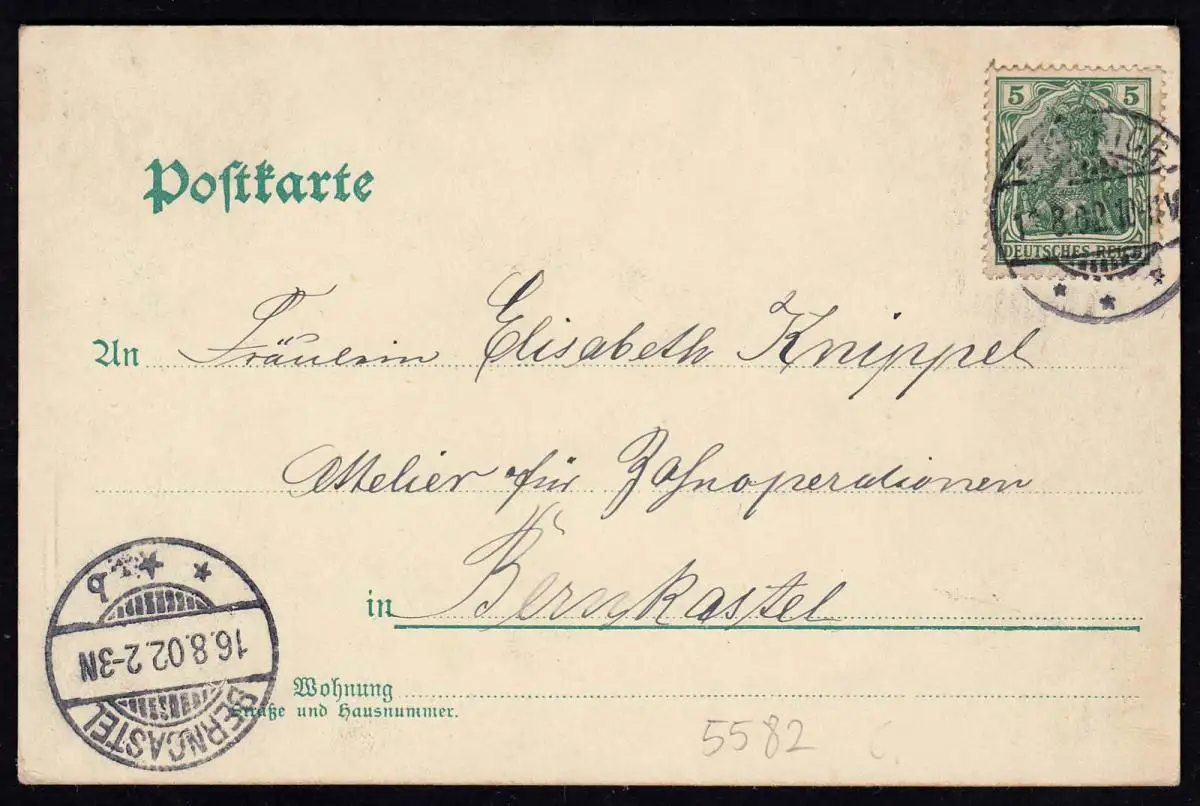 Postkarte
5 5
DEUTSCHES REICH
8.02.10-11V
An Fräulein Elisabeth Knippel
Atelier für Zahnoperationen
in Bernkastel
Wohnung
Straße und Hausnummer.
16.8.02.2-3N
BERNCASTEL
5582